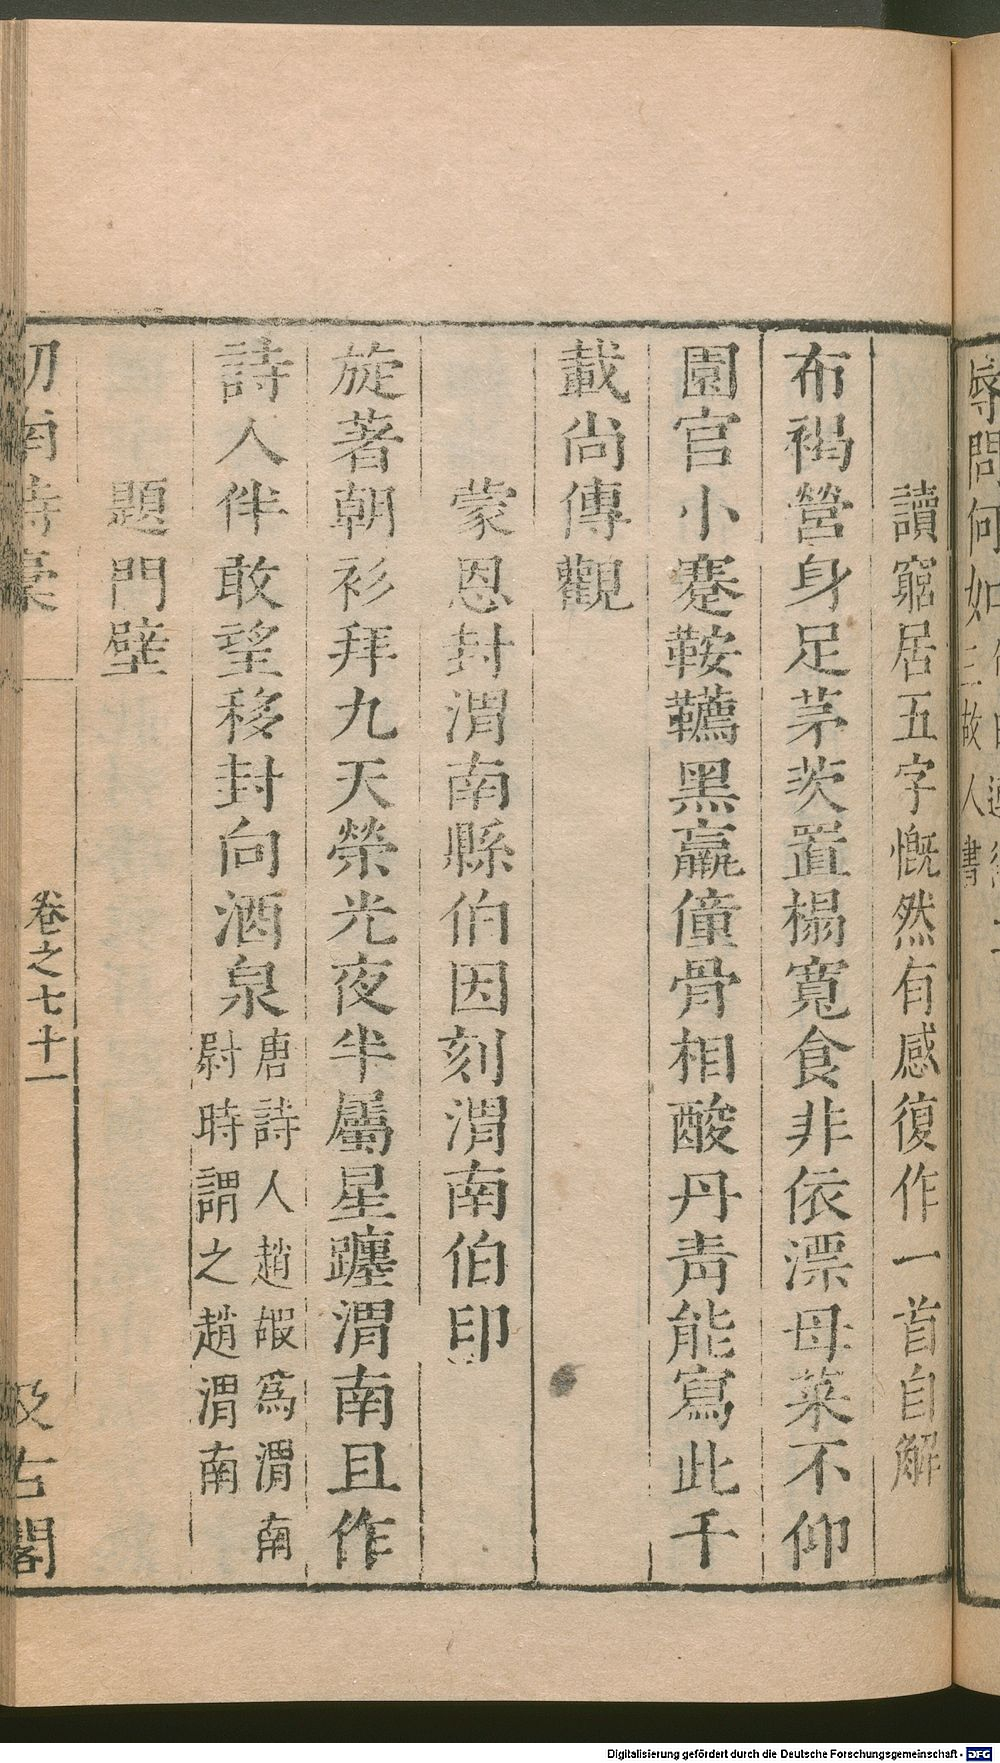 辱問何如
三故人書
讀窮居五字慨然有感復作一首自解
布褐營身足茅茨置榻寬食非依漂母菜不仰
園官小蹇鞍韉黑羸僮骨相酸丹靑能寫此千
載尚傳觀
蒙恩封渭南縣伯因刻渭南伯印
旋著朝衫拜九天榮光夜半屬星躔渭南且作
詩人伴敢望移封向酒泉
唐詩人趙嘏爲渭南
尉時謂之趙渭南
題門壁
劍南詩稾
卷之七十一
汲古閣
Digitalisierung gefördert durch die Deutsche Forschungsgemeinschaft - DFG